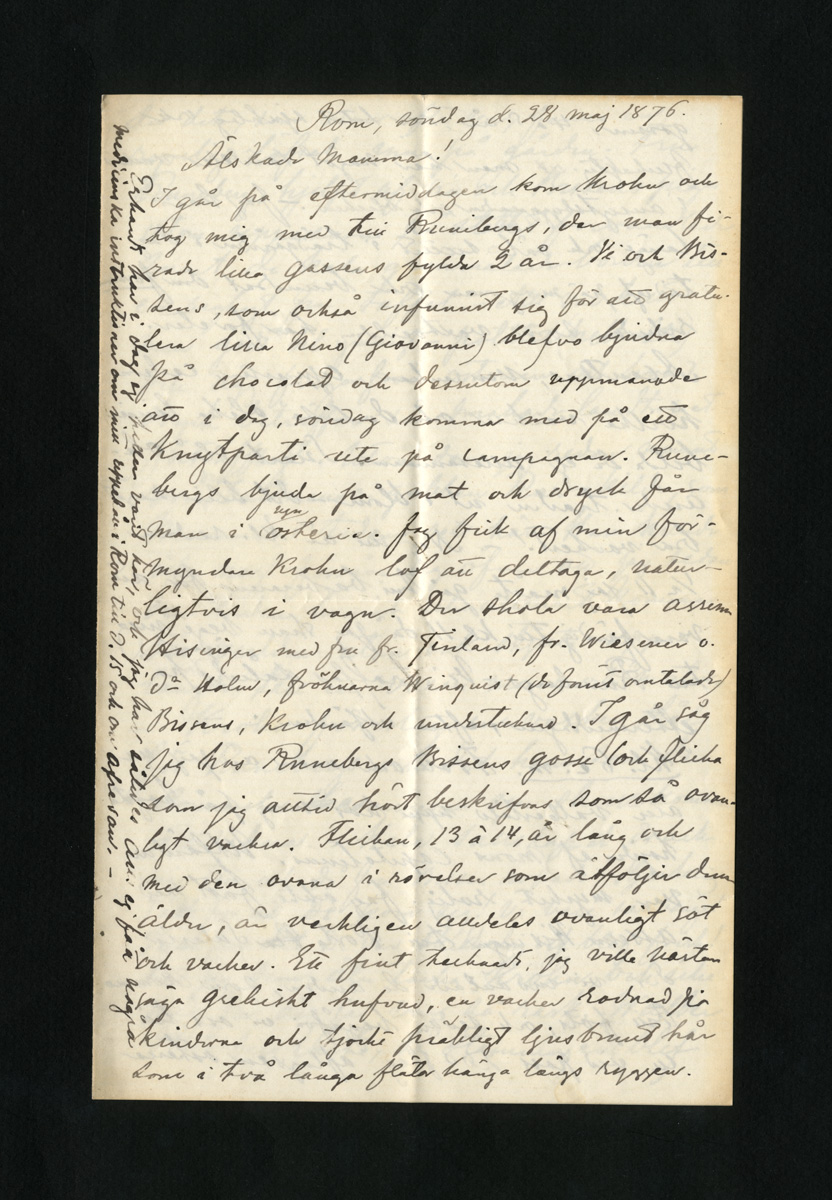 Rom, söndag d. 28 maj 1876.
Älskade Mamma!
I går på eftermiddagen kom Krohn och
tog mig med till Runebergs, der man fi-
rade lilla gossens fylda 2 år. Vi och Bis-
sens, som också infunnit sig för att gratu-
lera lilla Nino (Giovanni) blefvo bjudna
på chocolad och dessutom uppmanade
att i dag, söndag komma med på ett
Knytparti ute på campagnan. Rune-
bergs bjuda på mat och dryck får
man i osteria. Jag fick af min för-
myndare Krohn lof att deltaga, natur-
ligtvis i vagn. Der skola vara
Hisinger med fru fr. Finland, fr. Wiesener o.
Holm, fröknarna Winquist (de förut omtalade)
Bissens, Krohn och undertecknad. I går såg
jag hos Runebergs Bissens gosse och flicka
som jag alltid hört beskrifvas som så ovan-
ligt vackra. Flickan, 13 à 14 år, lång och
med den ovana i rörelser som åtföljer den
ålder, är verkligen alldeles ovanligt söt
och vacker. Ett fint tecknadt, jag ville nästan
säga grekiskt hufvud, en vacker rodnad på
kinderna och tjockt präktigt ljusbrunt hår
som i två långa flätor hänga längs ryggen.
Erhardt har i dag ej varit här, och jag har således ännu ej fått några
medicinska instruktioner om min i Rom till d. 15 och om afresan. –